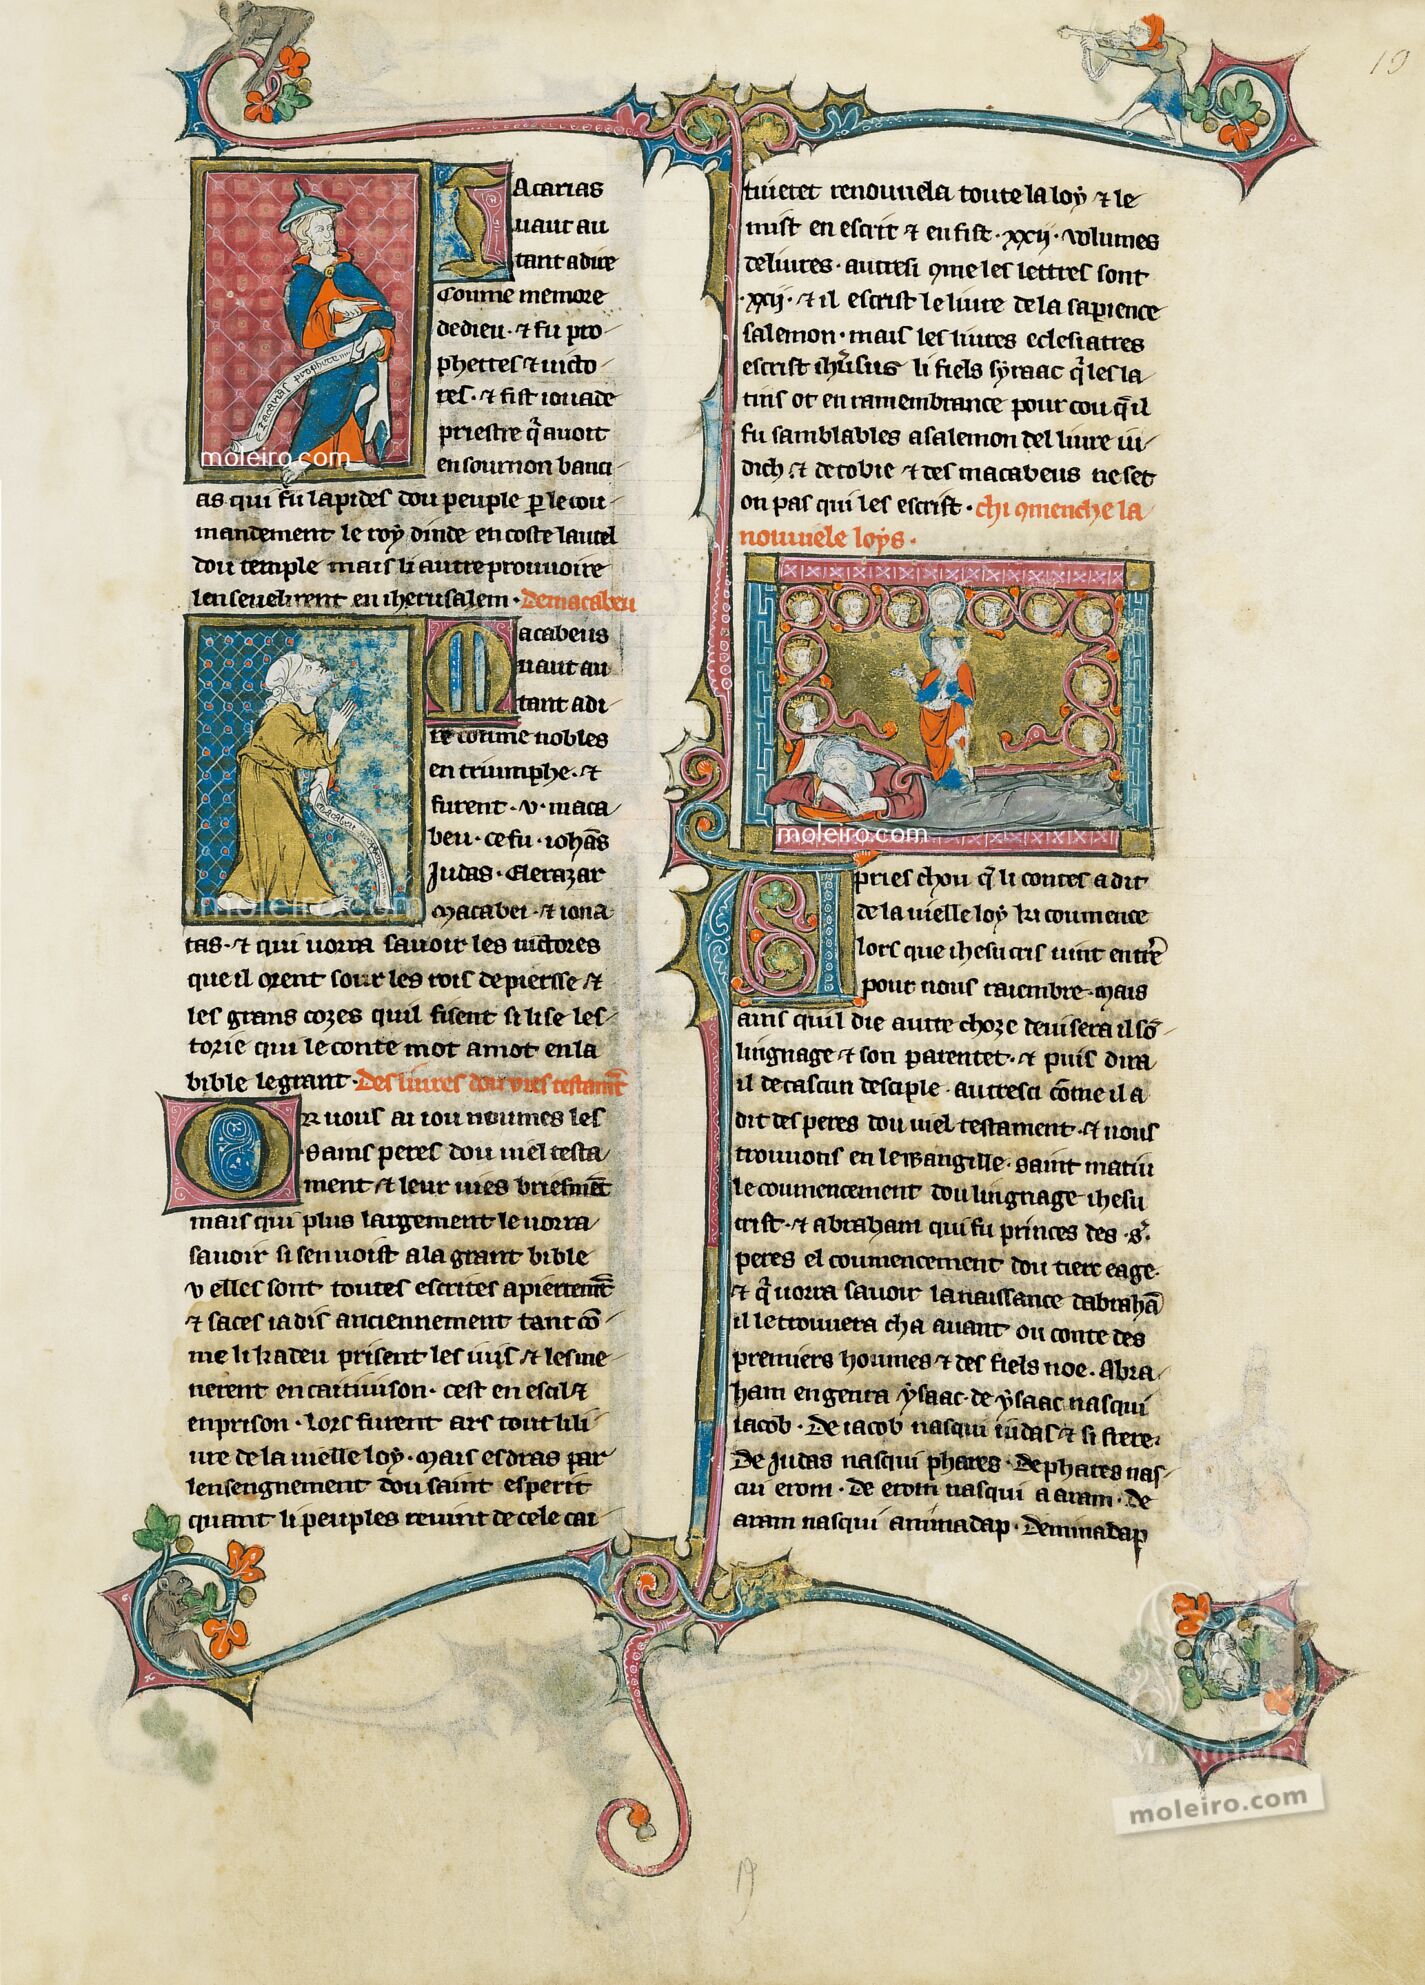 19
Zacarias
vaut au
tant a dire
coume memore
de dieu · ⁊ fu pro
phettes ⁊ victo
res · ⁊ fist iouade
priestre q̃ auoit
en sournon banci
as qui fu lapides dou peuple p̱ le cou
mandement le roy dinde encoste lautel
dou temple mais li autre prouuoire
lenseuelirent en iherusalem · De macabeu
zacarias prophete
Macabeus
vaut au
tant adi
re coume nobles
en triumphe · ⁊
furent · v · maca
beu · ce fu · iohãs
Judas · Elerazar
Macabei · ⁊ iona
tas · ⁊ qui uorra sauoir les uictores
que il orent sour les rois de piersse ⁊
les grans cozes quil fisent si lise les
torie qui le conte mot a mot en la
bible le grant · Des liures dou vies testamt̃
Or uous ai iou noumes les
sains peres dou uiel testa
ment ⁊ leur uies briefmẽt
mais qui plus largement le uorra
sauoir si sen uoist a la grant bible
v elles sont toutes escrites apiertemẽt
⁊ saces iadis anciennement tant cõ
me li kadeu prisent les iuis ⁊ les me
nerent en caitiuison · cest en escil ⁊
en prison · Lors furent ars tout li li
ure de la uielle loy · Mais esdras par
lensengnement dou saint esperit
quant li peuples reuint de cele cai
tiuetet renouuela toute la loy ⁊ le
mist en escrit ⁊ en fist · xxij · volumes
de liures · autresi q̃me les lettres sont
· xxij · ⁊ il escrist le liure de la sapience
salemon · mais les liures eclesiastres
escrist ih'rusus li fiels syraac q̃ les la
tins ot en ramembrance pour cou q̃ il
fu samblables a salemon del liure iu
dich · ⁊ de tobie ⁊ des macabeus ne set
on pas qui les escrist · chi q̃menche la
nouuiele loys ·
Apries chou q̃ li contes a dit
de la uielle loy ki coumence
lors que ihesucris uint en tr̃e
pour nous raiembre · Mais
ains quil die autre choze deuisera il sõ
lingnage ⁊ son parentet · ⁊ puis dira
il de cascun desciple · autresci cõme il a
dit des peres dou uiel testament · ⁊ nous
trouuons en lewangille · saint matiu
le coumencement dou lingnage ihesu
crist · ⁊ abraham qui fu princes des · s' ·
peres el coumencement dou tierc eage ·
⁊ q̃ uorra sauoir la naissance dabrahã
il le trouuera cha auant ou conte des
premiers houmes ⁊ des fiels noe · Abra
ham engenra ysaac · de ysaac nasqui
iacob · De iacob nasqui iudas ⁊ si frere ·
De Judas nasqui phares · De phares nas
qui erom · De erom nasqui a aram · de
aram nasqui aminadap · Deminadap
19
moleiro.com
moleiro.com
moleiro.com
M. Moleiro
moleiro.com